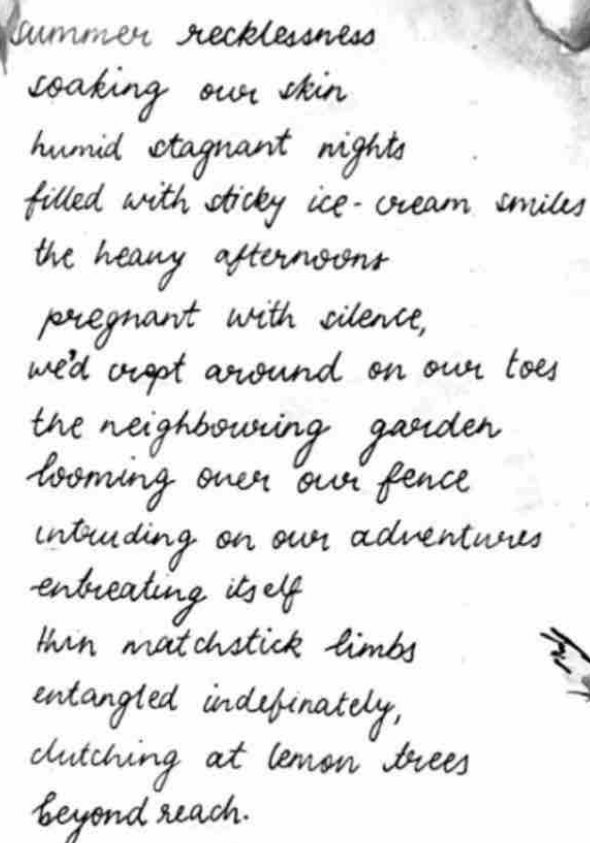 summer recklessness
soaking our skin
humid stagnant nights
filled with sticky ice-cream smiles
the heavy afternoons
pregnant with silence,
we'd crept around on our toes
the neighbouring garden
looming over our fence
intruding on our adventures
entreating itself
thin matchstick limbs
entangled indefinately,
clutching at lemon trees
beyond reach.